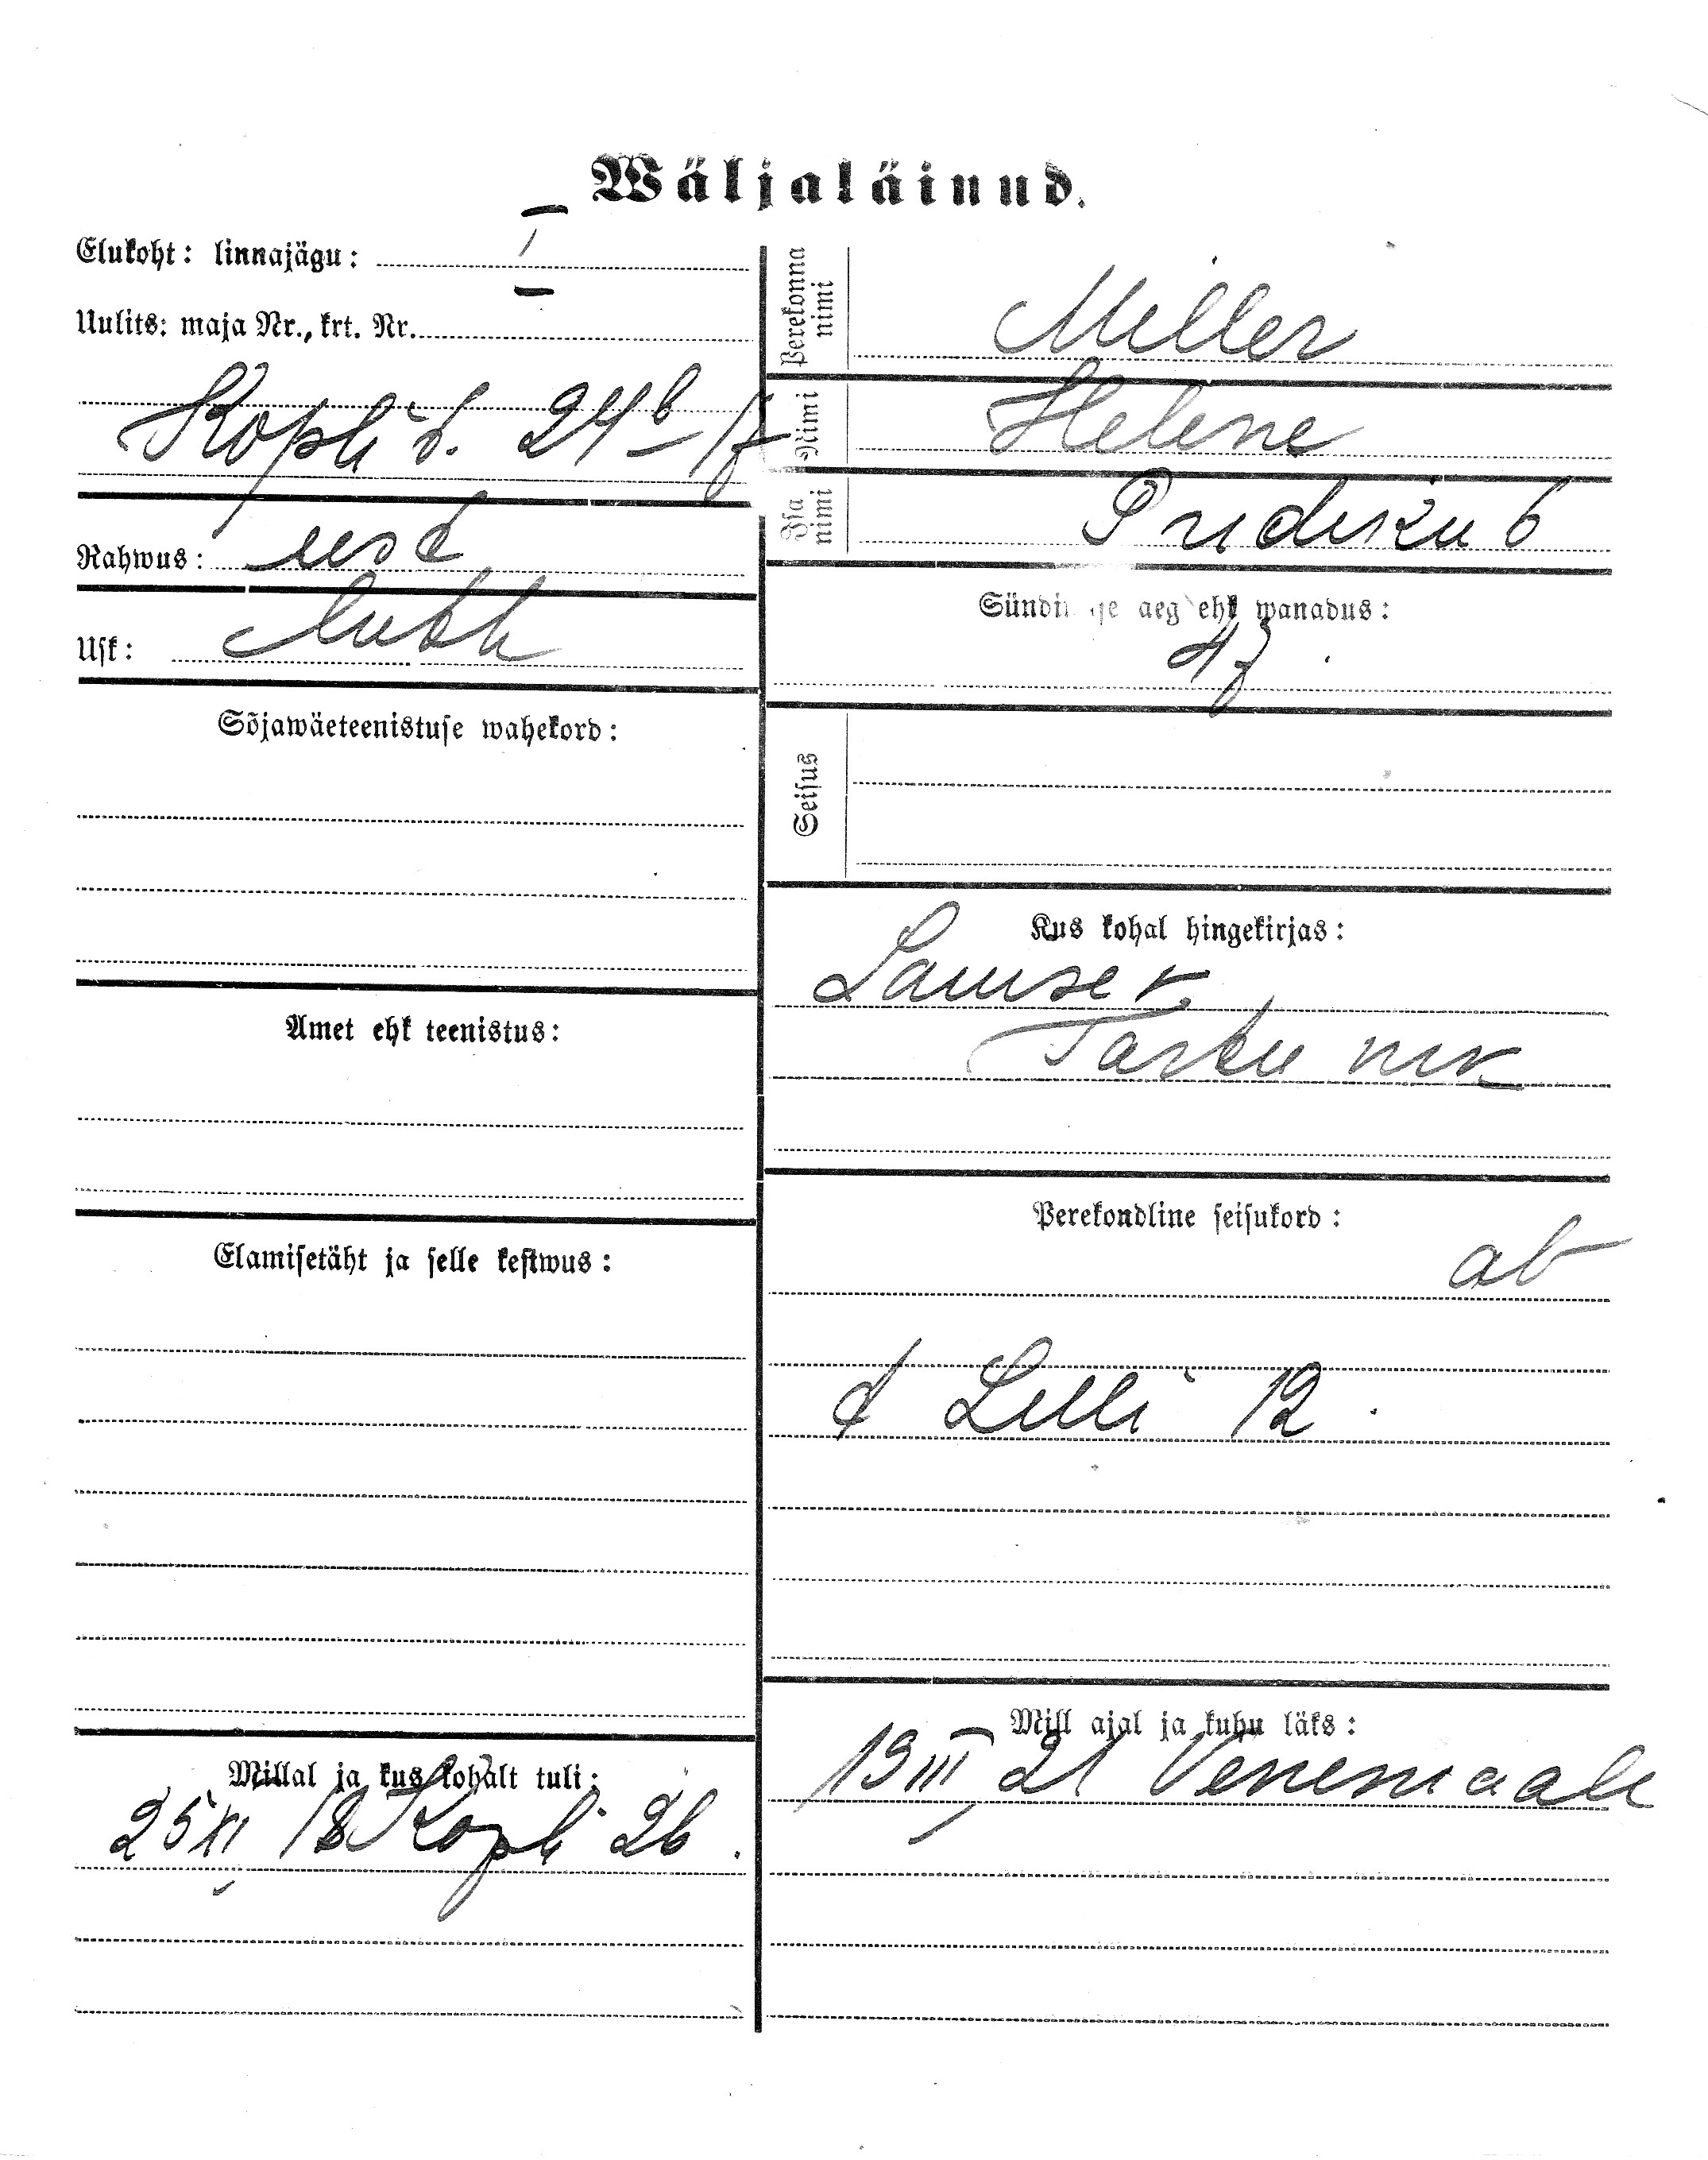 Wäljaläinud.
Elukoht: linnajägu: I
Uulits: maja Nr., krt. Nr.
Kopli t. 24b
Rahwus: eest
Usk: luth
Sõjawäeteenistuse wahekord:
Amet ehk teenistus:
Elamisetäht ja selle kestwus:
Millal ja kus kohalt tuli:
25 XI 18 Kopli 26.
Perekonna nimi
Miller
Nimi
Helene
Isa nimi
Pridiku t
Sündimise aeg ehk wanadus:
47
Seisus
Kus kohal hingekirjas:
v.
Tartu mk
Perekondline seisukord:
ab
t Lilli 12.
Mill ajal ja kuhu läks:
19 III 21 Venemaale